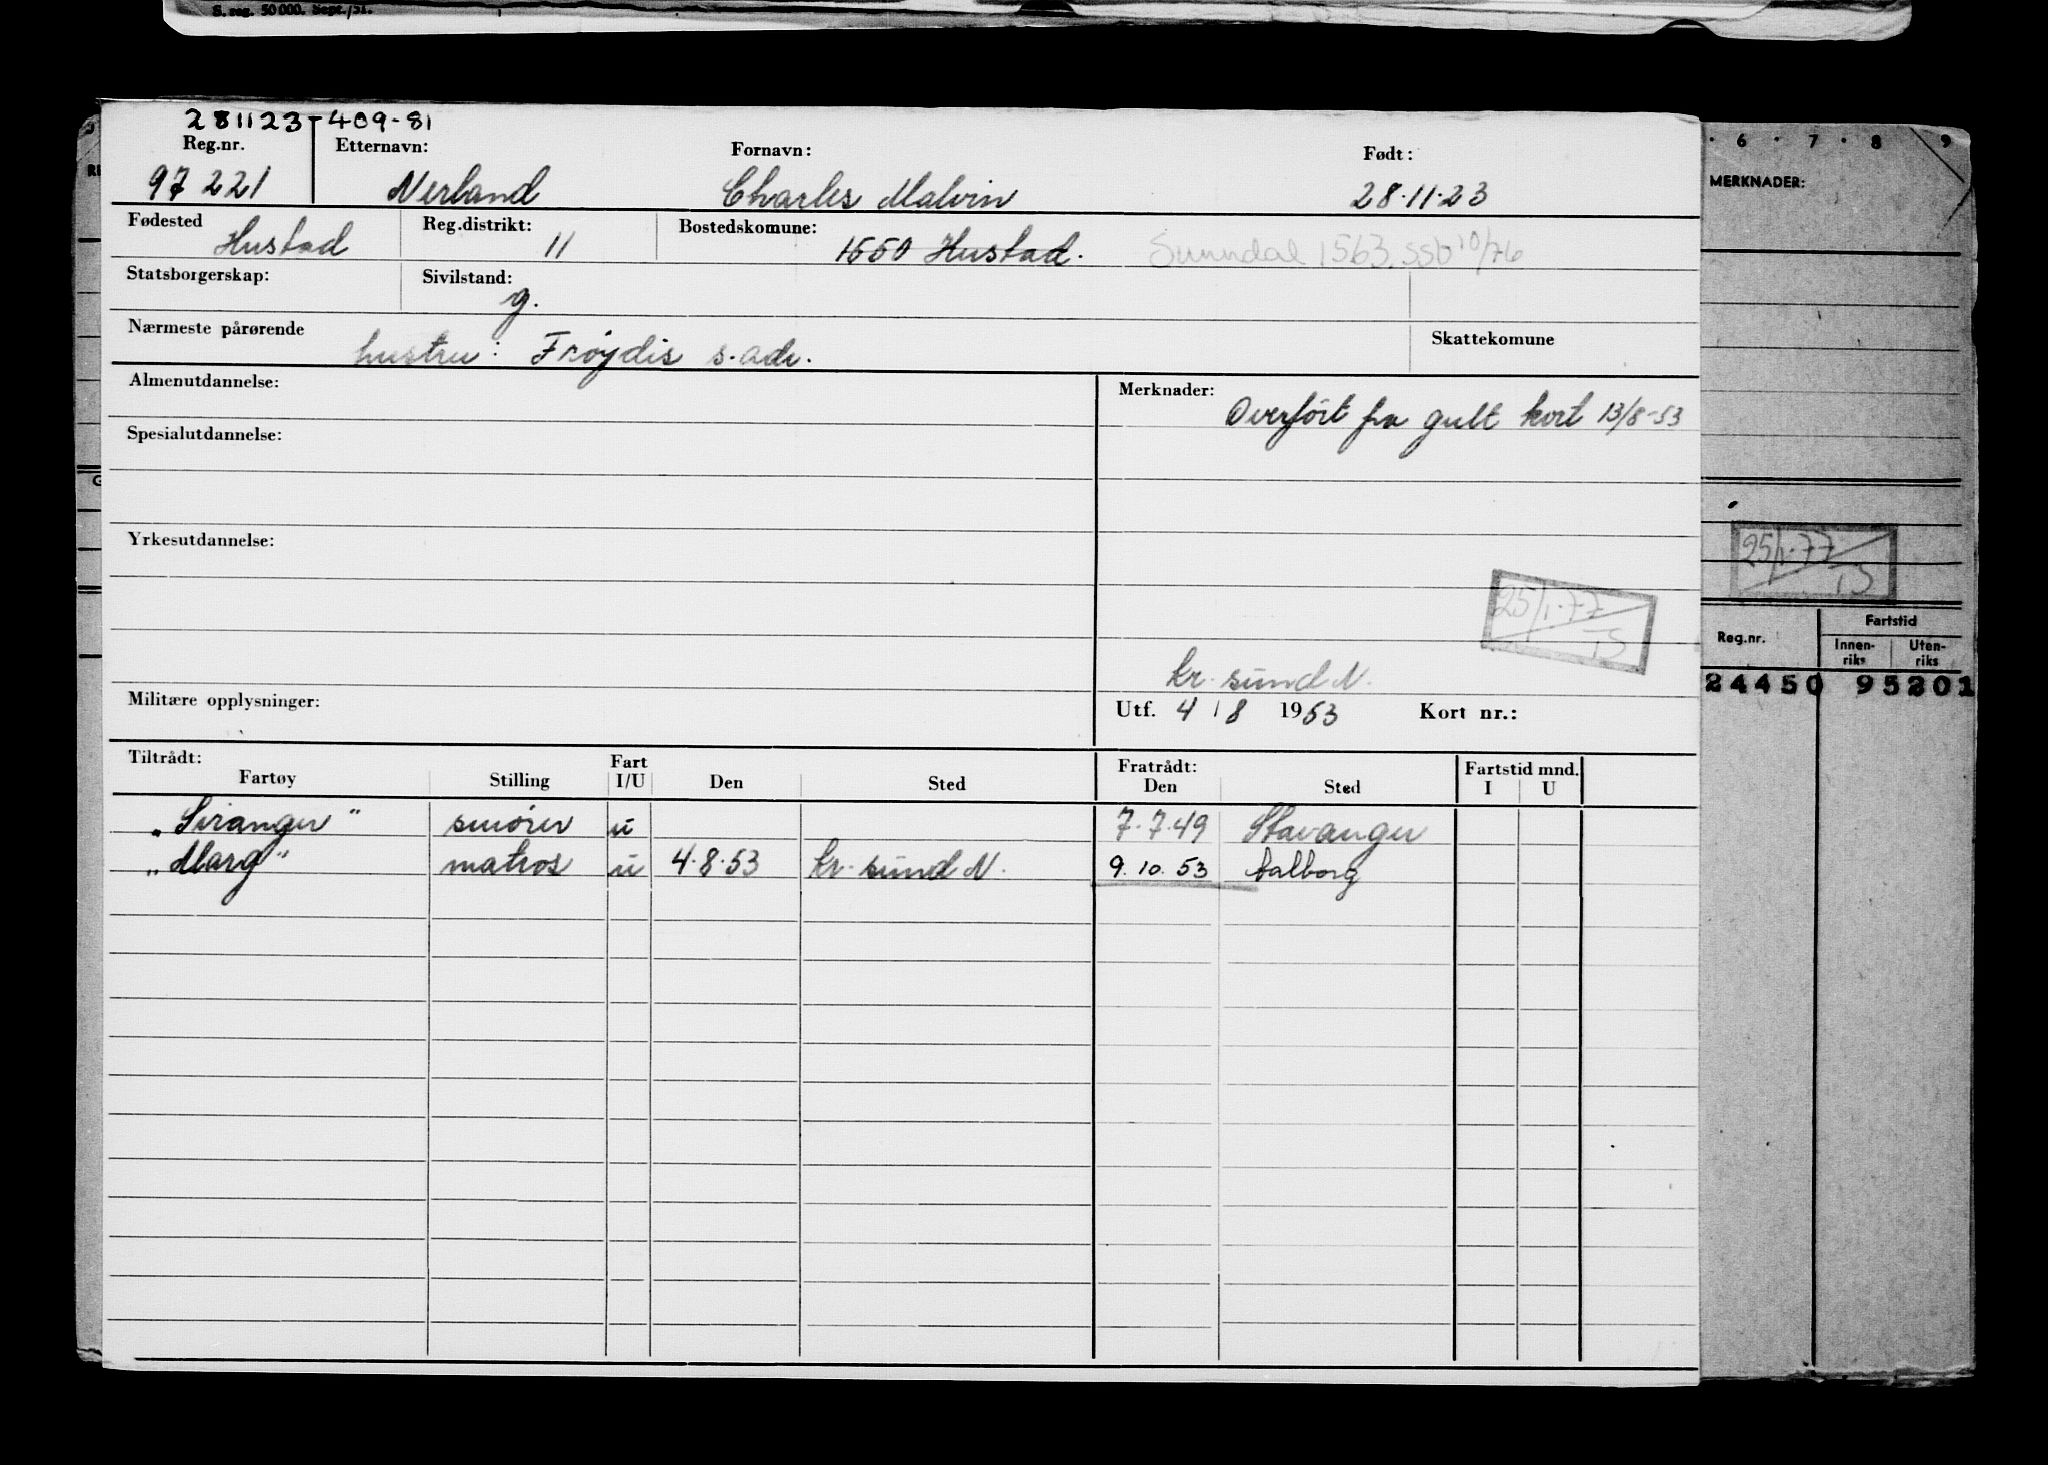 S. reg. 50 000. Sept./51.
281123-409-81
Reg.nr. Etternavn: Fornavn: Født:
97 221 Nerland Charles Malvin 28.11.23
Fødested Reg.distrikt: Bostedskomune:
Hustad 11 1550 Hustad. Sunndal 1563. SSB 10/76
Statsborgerskap: Sivilstand:
g.
Nærmeste pårørende Skattekomune
hustru: Frøydis s. adr.
Almenutdannelse: Merknader:
Overført fra gult kort 13/8-53
Spesialutdannelse:
Yrkesutdannelse:
25/1-77
TS
kr. sund N.
Militære opplysninger: Utf. 4 / 8 1953 Kort nr.:
Tiltrådt: Fart Fratrådt: Fartstid mnd.
Fartøy Stilling I/U Den Sted Den Sted I U
„Siranger" smører u 7.7.49 Stavanger
„Marg" matros u 4.8.53 kr. sund N. 9.10.53 Aalborg
6 . 7 . 8 9
MERKNADER:
25/1-77
TS
Reg.nr. Fartstid
Innen-riks Uten-riks
24450 95201